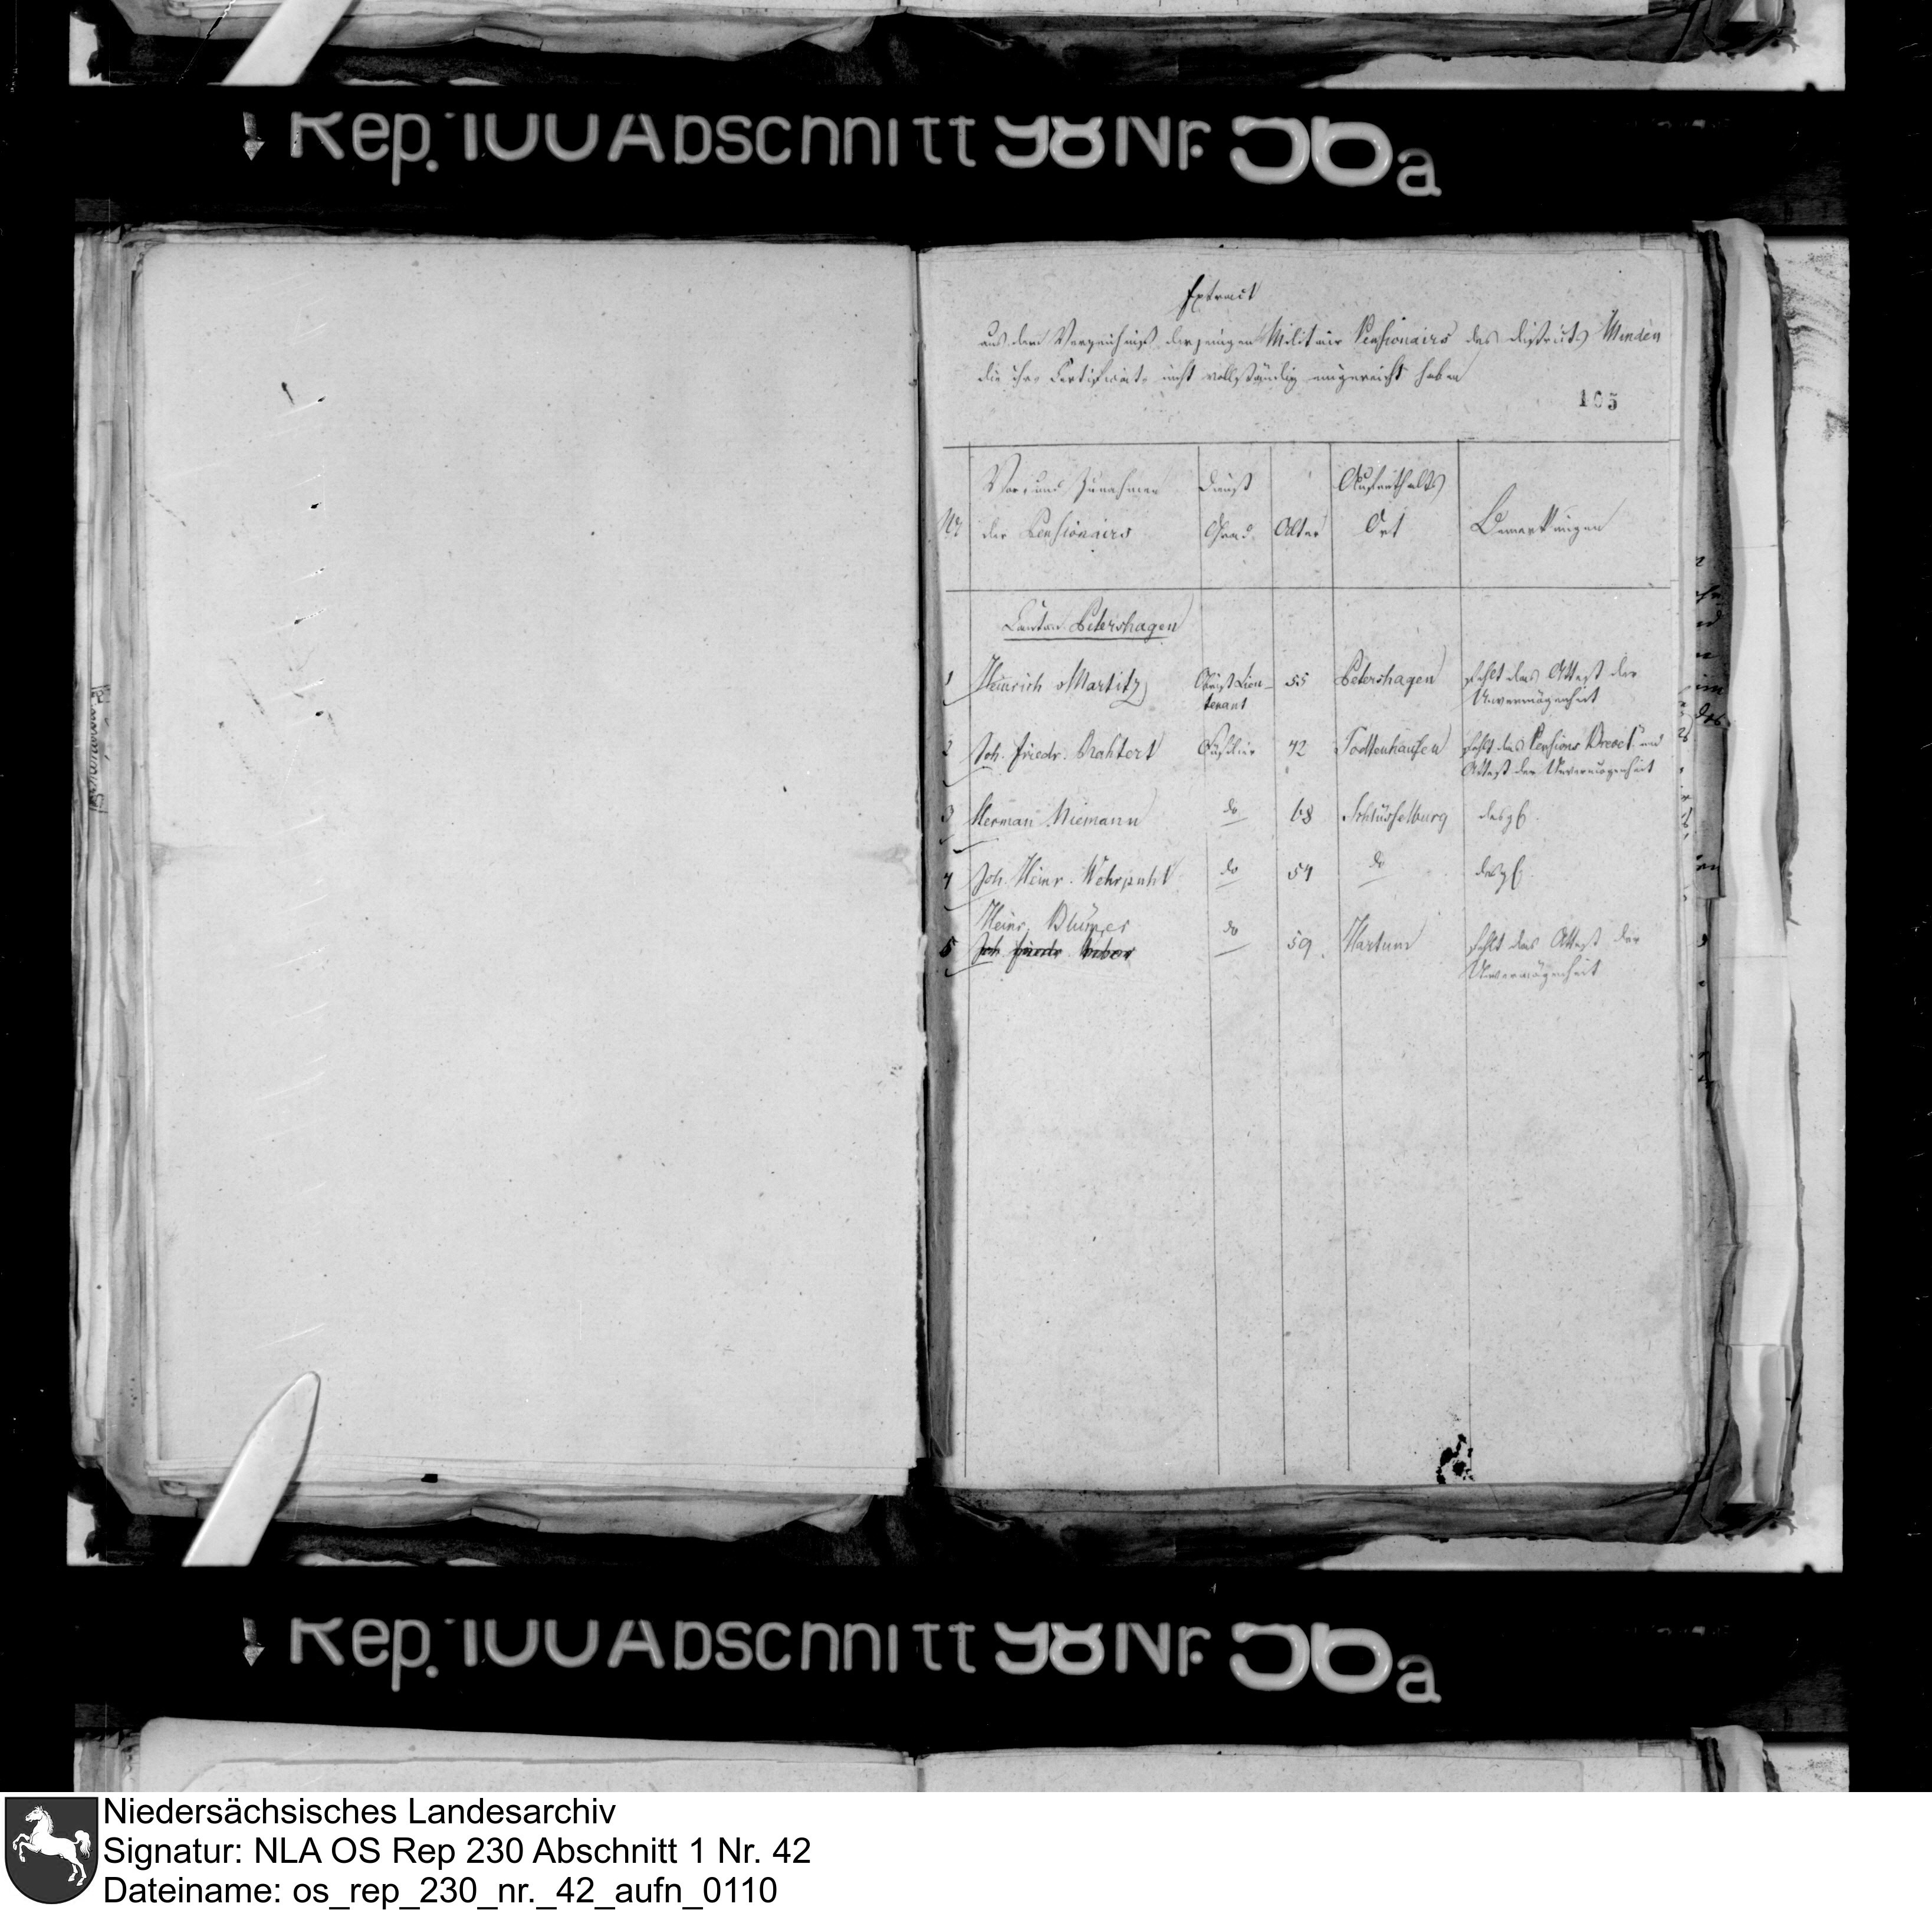 Rep. 100 Abschnitt 98 Nr. 56a
Extract
aus dem Verzeichniß derjenigen Militair Pensionairs des Districts Minden
die ihre Certificate nicht vollständig eingereicht haben
105
Vor- und Zunahmen Dienst Aufenthalts
Nr der Pensionairs Grad Alter Ort Bemerkungen
Canton Petershagen
1 Heinrich v Martitz Obrist Lieu- 55 Petershagen fehlt das Attest der
tenant Unvermögenheit
2 Joh. Friedr. Rahtert Füsilier 42 Todtenhausen fehlt das Pensions Brevet und
Attest der Unvermögenheit
3 Herman Niemann do 68 Schlüsselburg desgl.
4 Joh. Heinr. do 54 do desgl.
Heinr. Blümer
5 Joh Friedr do 59. Hartum fehlt das Attest der
Unvermögenheit
Rep. 100 Abschnitt 98 Nr. 56a
Niedersächsisches Landesarchiv
Signatur: NLA OS Rep 230 Abschnitt 1 Nr. 42
Dateiname: os_rep_230_nr._42_aufn_0110